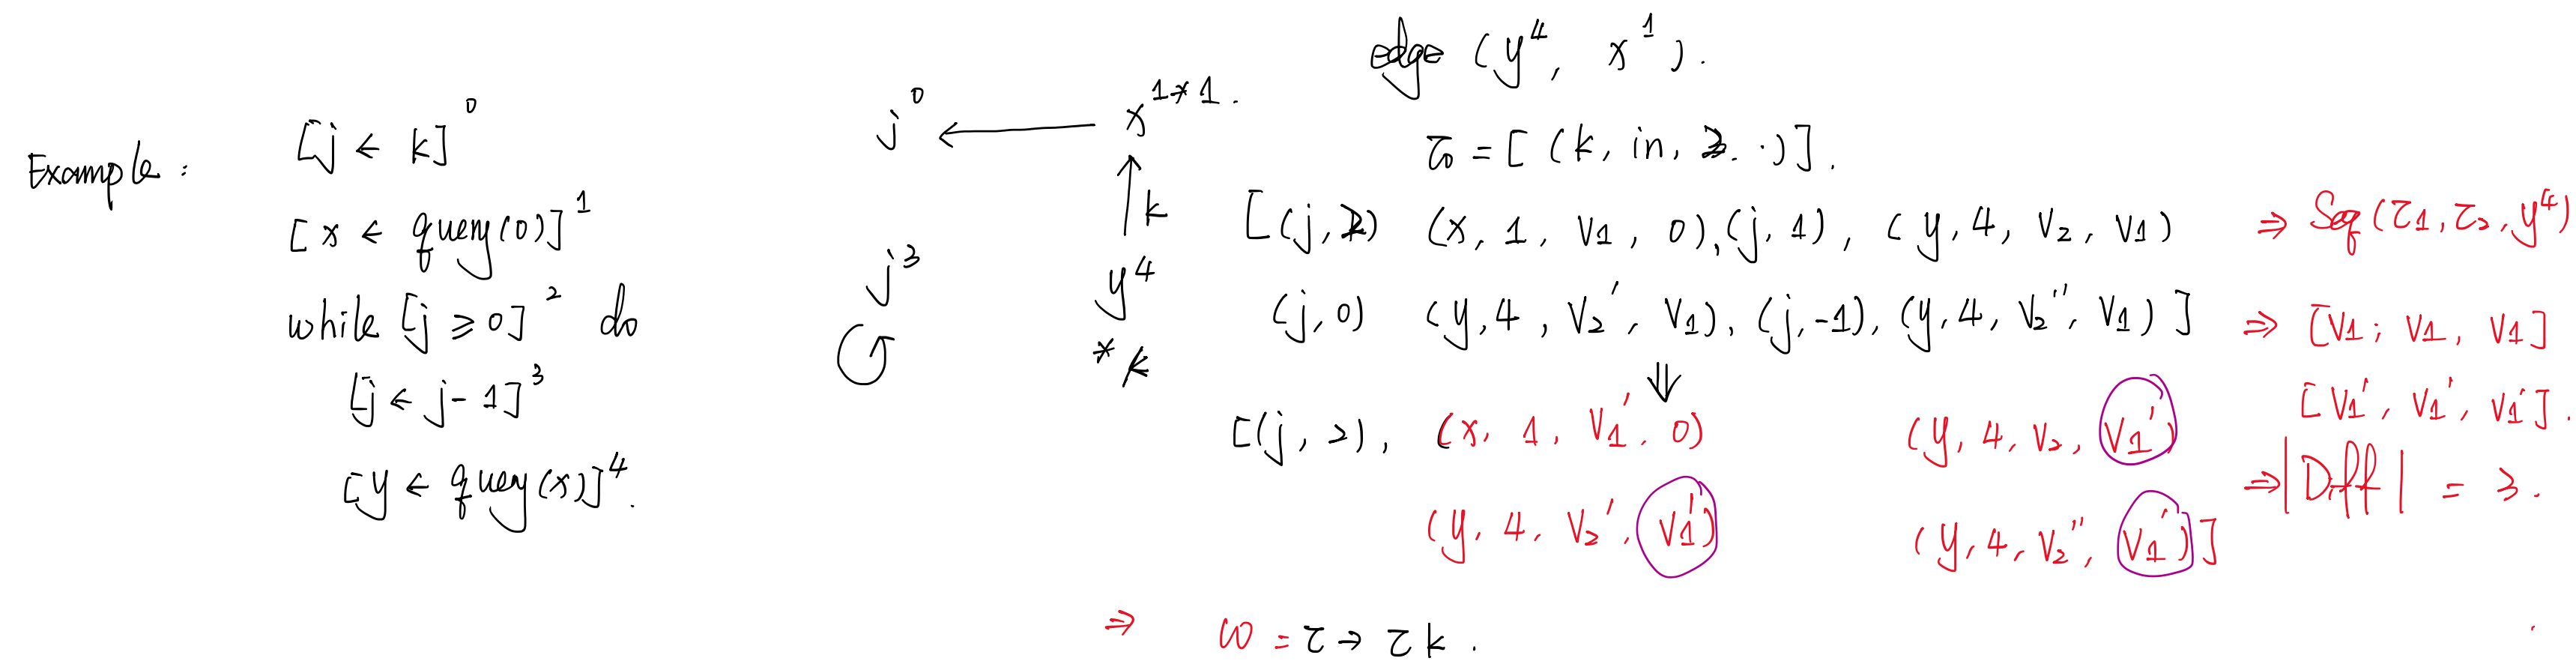 Example :
[j ← k]⁰
[x ← query(0)]¹
while [j ≥ 0]² do
[j ← j - 1]³
[y ← query(x)]⁴.
j⁰ ← x¹ * 1.
↑ k
j³
y⁴
* k
edge (y⁴, x¹).
τ₀ = [ (k, in, 2. ·)].
[(j, 2) (x, 1, v1, 0), (j, 1), (y, 4, v₂, v1)
(j, 0) (y, 4, v₂', v1), (j, -1), (y, 4, v₂'', v1) ]
⇓
[(j, 2), (x, 1, v1', 0) (y, 4, v₂, v1')
(y, 4, v₂', v1') (y, 4, v₂'', v1')]
⇒ Seq(τ1, τ₂, y⁴)
⇒ [v1; v1, v1]
[v1', v1', v1'].
⇒ |Diff| = 3.
⇒ ω = τ → τ k.